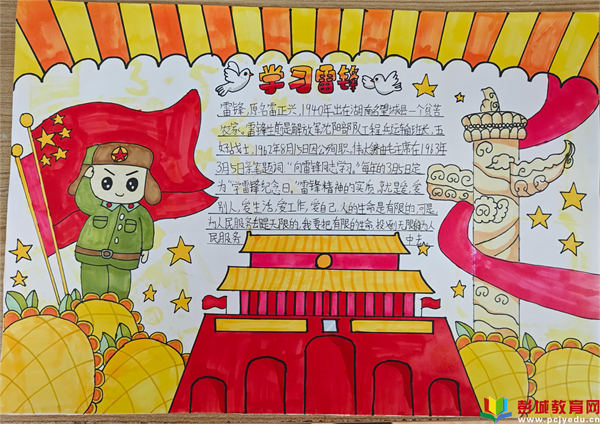 学习雷锋
雷锋,原名雷正兴,1940年出在湖南省望城县一个贫苦
农家。雷锋生前是解放军沈阳部队工程兵运输班长、五
好战士,1962年8月15日因公殉职。伟大领袖毛主席在1963年
3月5日亲笔题词"向雷锋同志学习。"每年的3月5日定
为"学雷锋纪念日。"雷锋精神的实质,就是爱
别人,爱生活,爱工作,爱自己。人的生命是有限的,可是,
为人民服务是无限的,我要把有限的生命,投入到无限的为人
民服务 中去
彭城教育网
www.pcjyedu.cn